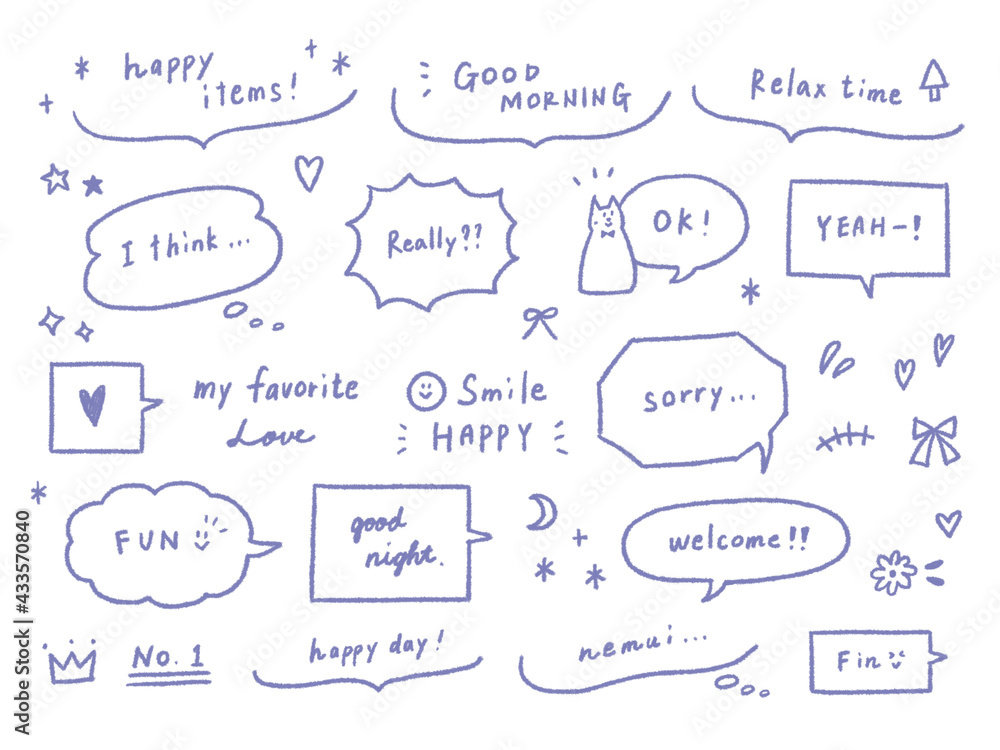 happy
items!
GOOD
MORNING
Relax time
I think...
Really??
OK!
YEAH-!
my favorite
Love
Smile
HAPPY
sorry...
FUN
good
night.
welcome!!
No. 1
happy day!
nemui...
Fin
Adobe Stock | #433570840